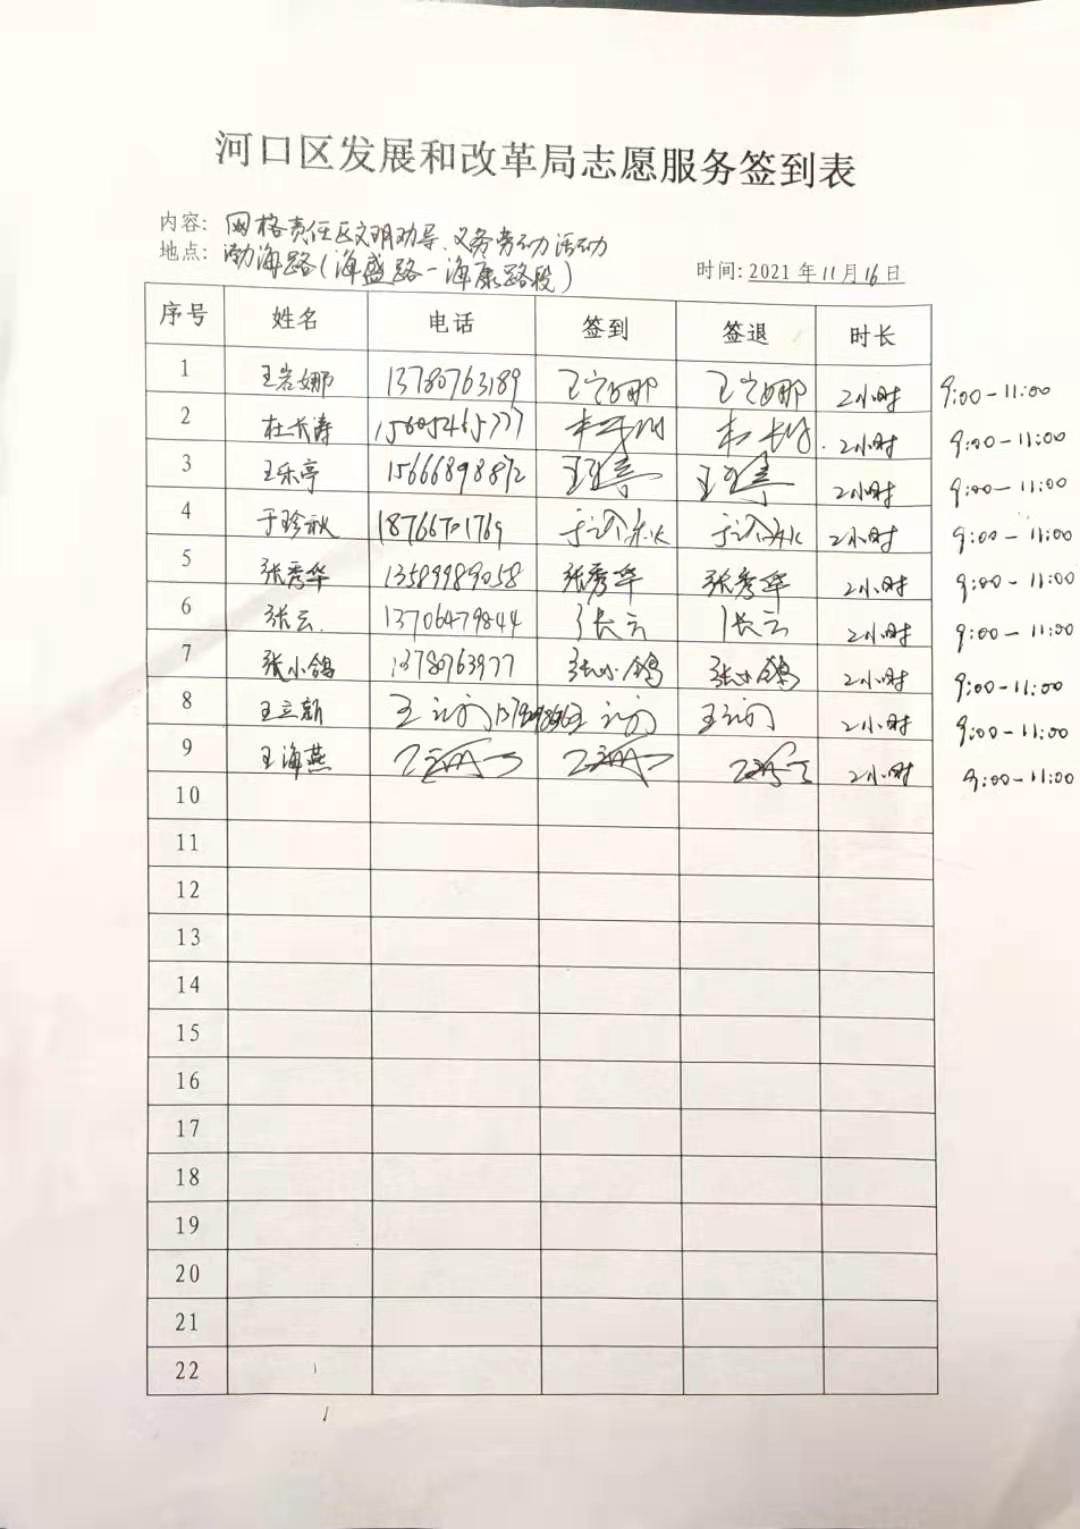 河口区发展和改革局志愿服务签到表
内容: 网格责任区文明劝导、义务劳动活动
地点: 渤海路(海盛路-海康路段)
时间: 2021年11月16日
序号 姓名 电话 签到 签退 时长
1 王岩娜 13780763189 王岩娜 王岩娜 2小时 9:00-11:00
2 杜长涛 15605465777 2小时 9:00-11:00
3 王乐亭 15666898872 2小时 9:00-11:00
4 于珍秋 18766701769 于珍秋 于珍秋 2小时 9:00-11:00
5 张秀华 13589989058 张秀华 张秀华 2小时 9:00-11:00
6 张云 13706479844 张云 张云 2小时 9:00-11:00
7 张小鸽 13780763977 张小鸽 张小鸽 2小时 9:00-11:00
8 王立新 2小时 9:00-11:00
9 王海燕 2小时 9:00-11:00
10
11
12
13
14
15
16
17
18
19
20
21
22